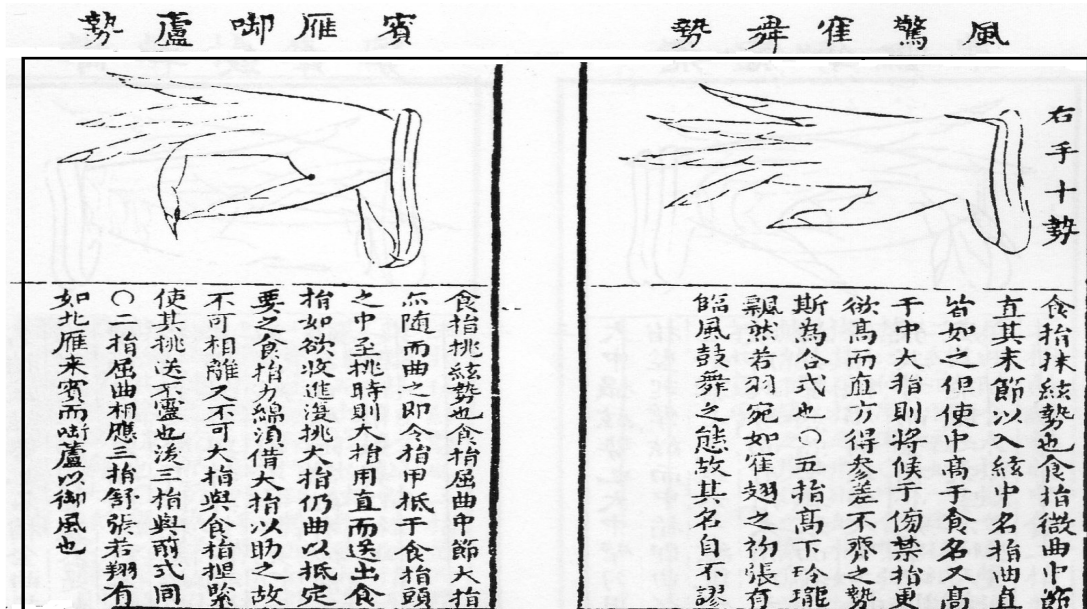 風驚寉舞勢
右手十勢
食指抹絃勢也食指微曲中節
直其末節以入絃中名指曲直
皆如之但使中高于食名又高
于中大指則將候于傍禁指更
欲高而直方得參差不齊之勢
斯為合式也〇五指高下玲瓏
飄然若羽宛如寉翅之衯張有
臨風鼓舞之態故其名自不謬
賓雁啣廬勢
食指挑絃勢也食指屈曲中節大指
亦随而曲之即令指甲抵于食指頭
之中至挑時則大指用直而送出食
指如欲收進復挑大指仍曲以抵定
要之食指力綿湏借大指以助之故
不可相離又不可大指與食指捏緊
使其挑送不靈也後三指與前式同
〇二指屈曲相應三指舒張若翔有
如北雁来賓而啣蘆以御風也